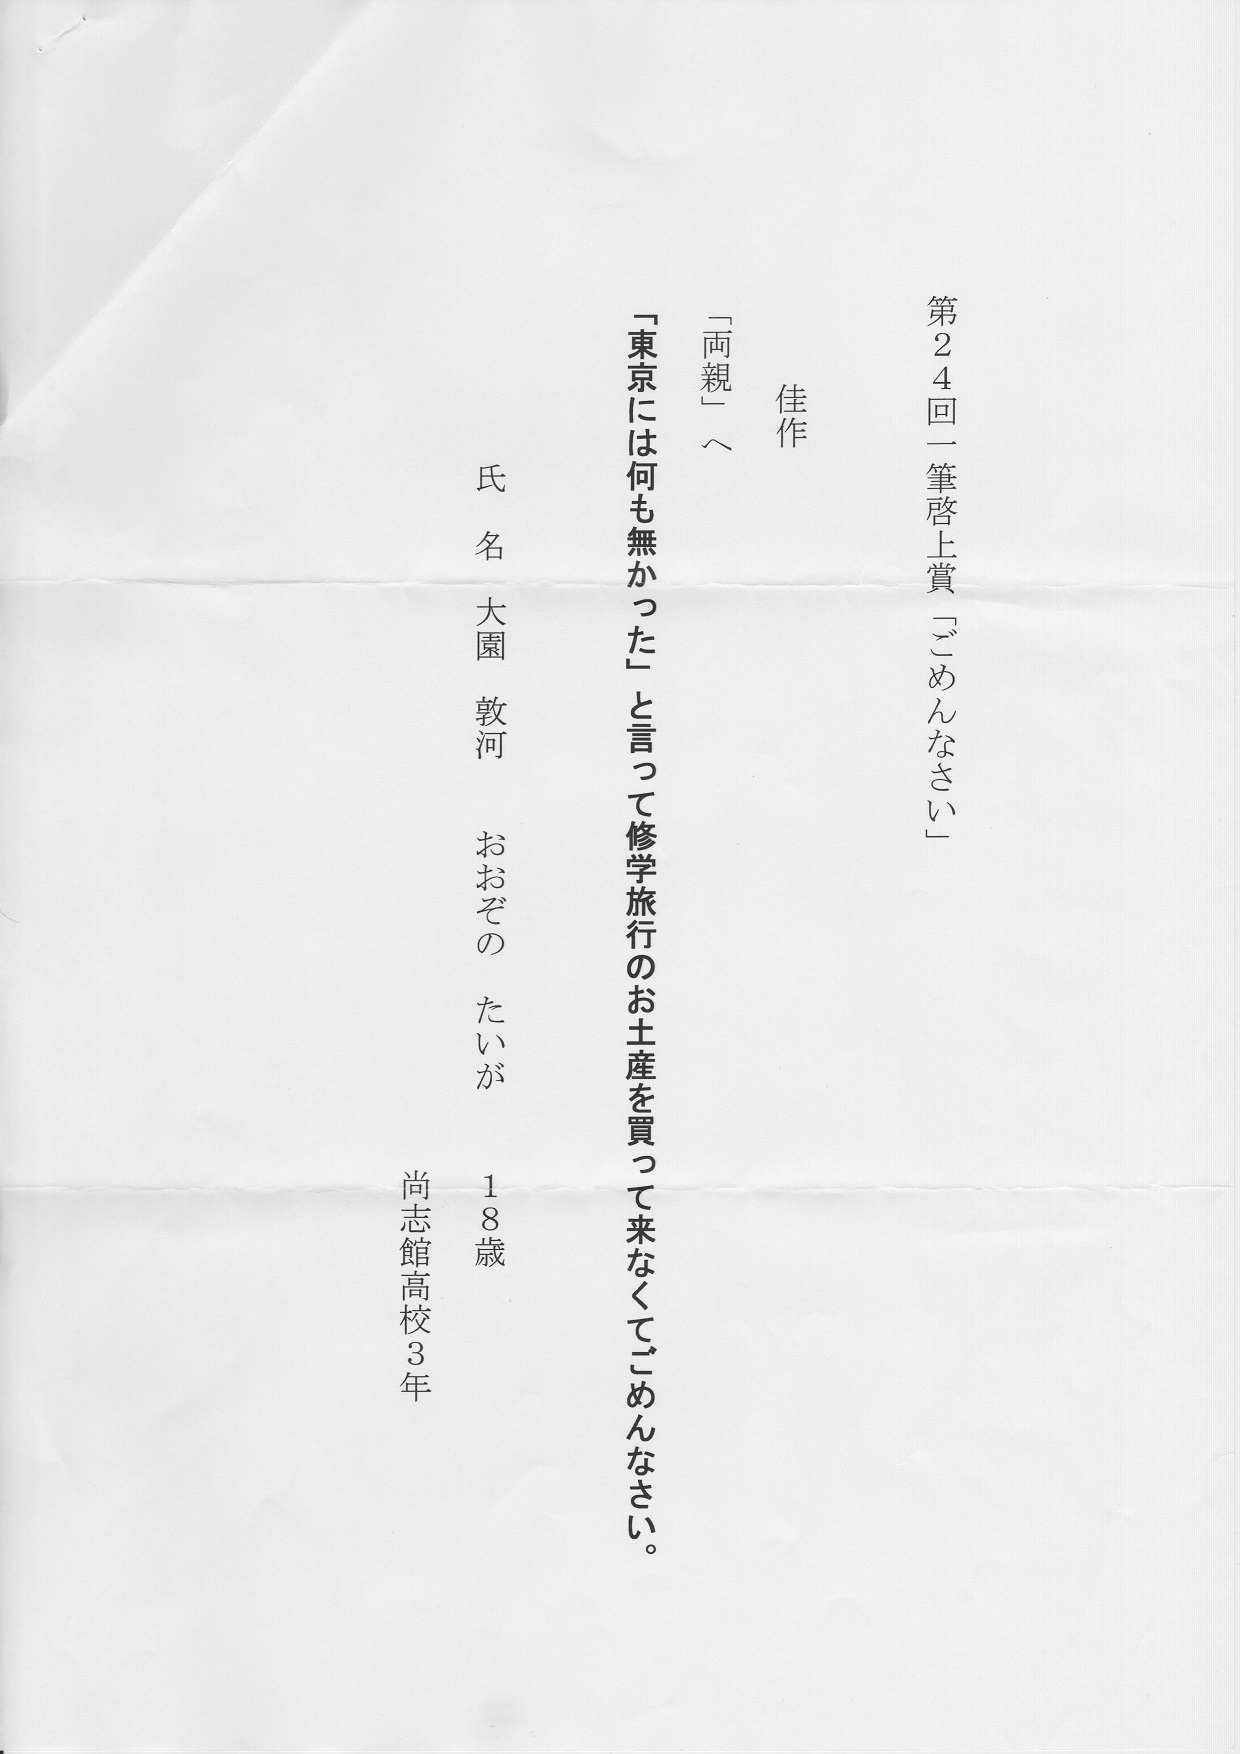 第２４回一筆啓上賞「ごめんなさい」
佳作
「両親」へ
「東京には何も無かった」と言って修学旅行のお土産を買って来なくてごめんなさい。
氏　名　大園　敦河　　おおぞの　たいが　　１８歳
尚志館高校３年